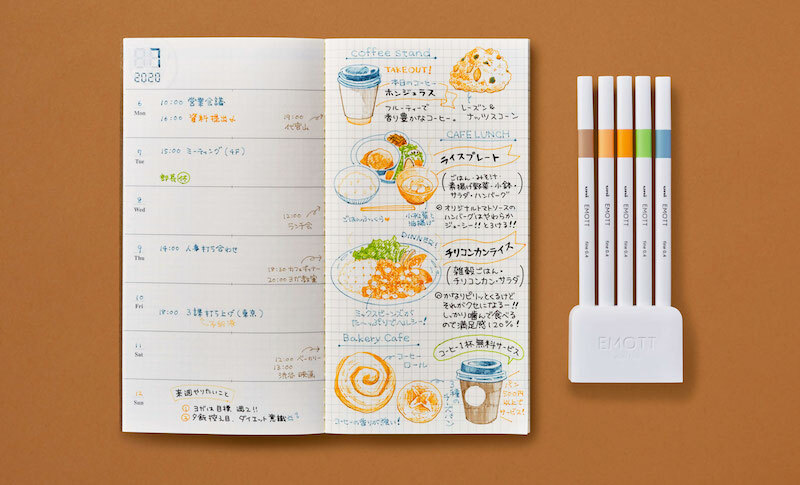 7
2020
6
Mon
10:00 営業会議
16:00 資料提出
19:00
代官山
7
Tue
15:00 ミーティング(4F)
8
Wed
12:00
ランチ会
9
Thu
14:00 人事打ち合わせ
18:30 カフェディナー
20:00 ヨガ教室
10
Fri
18:00 3課打ち上げ(東京)
11
Sat
12:00 ベーカリー
13:00
渋谷 映画
Sun
来週やりたいこと
① ヨガは目標 週2!!
② 夕飯控え目、ダイエット意識
coffee stand
TAKEOUT!
本日のコーヒー
ホンジュラス
フルーティーで
香り豊かなコーヒー。
レーズン&
ナッツスコーン
CAFE LUNCH
ライスプレート
ごはん・みそ汁
素揚げ野菜・小鉢・
サラダ・ハンバーグ
オリジナルトマトソースの
ハンバーグはやわらか
ジューシー!!とろける!!
ごはんふっくら
小松菜と
油揚げ
DINNER!
チリコンカンライス
雑穀ごはん・
チリコンカン・サラダ
かなりピリッとくるけど
それがクセになるー!!
しっかり噛んで食べる
ので満足感120%!
ミックスビーンズが
たーっぷりでヘルシー!
Bakery Cafe
コーヒー1杯無料サービス
コーヒー
ロール
コーヒーの香りが強い!
3種の
パン
500円
以上で
サービス!
uni EMOTT fine 0.4
uni EMOTT fine 0.4
uni EMOTT fine 0.4
uni EMOTT fine 0.4
uni EMOTT fine 0.4
EMOTT